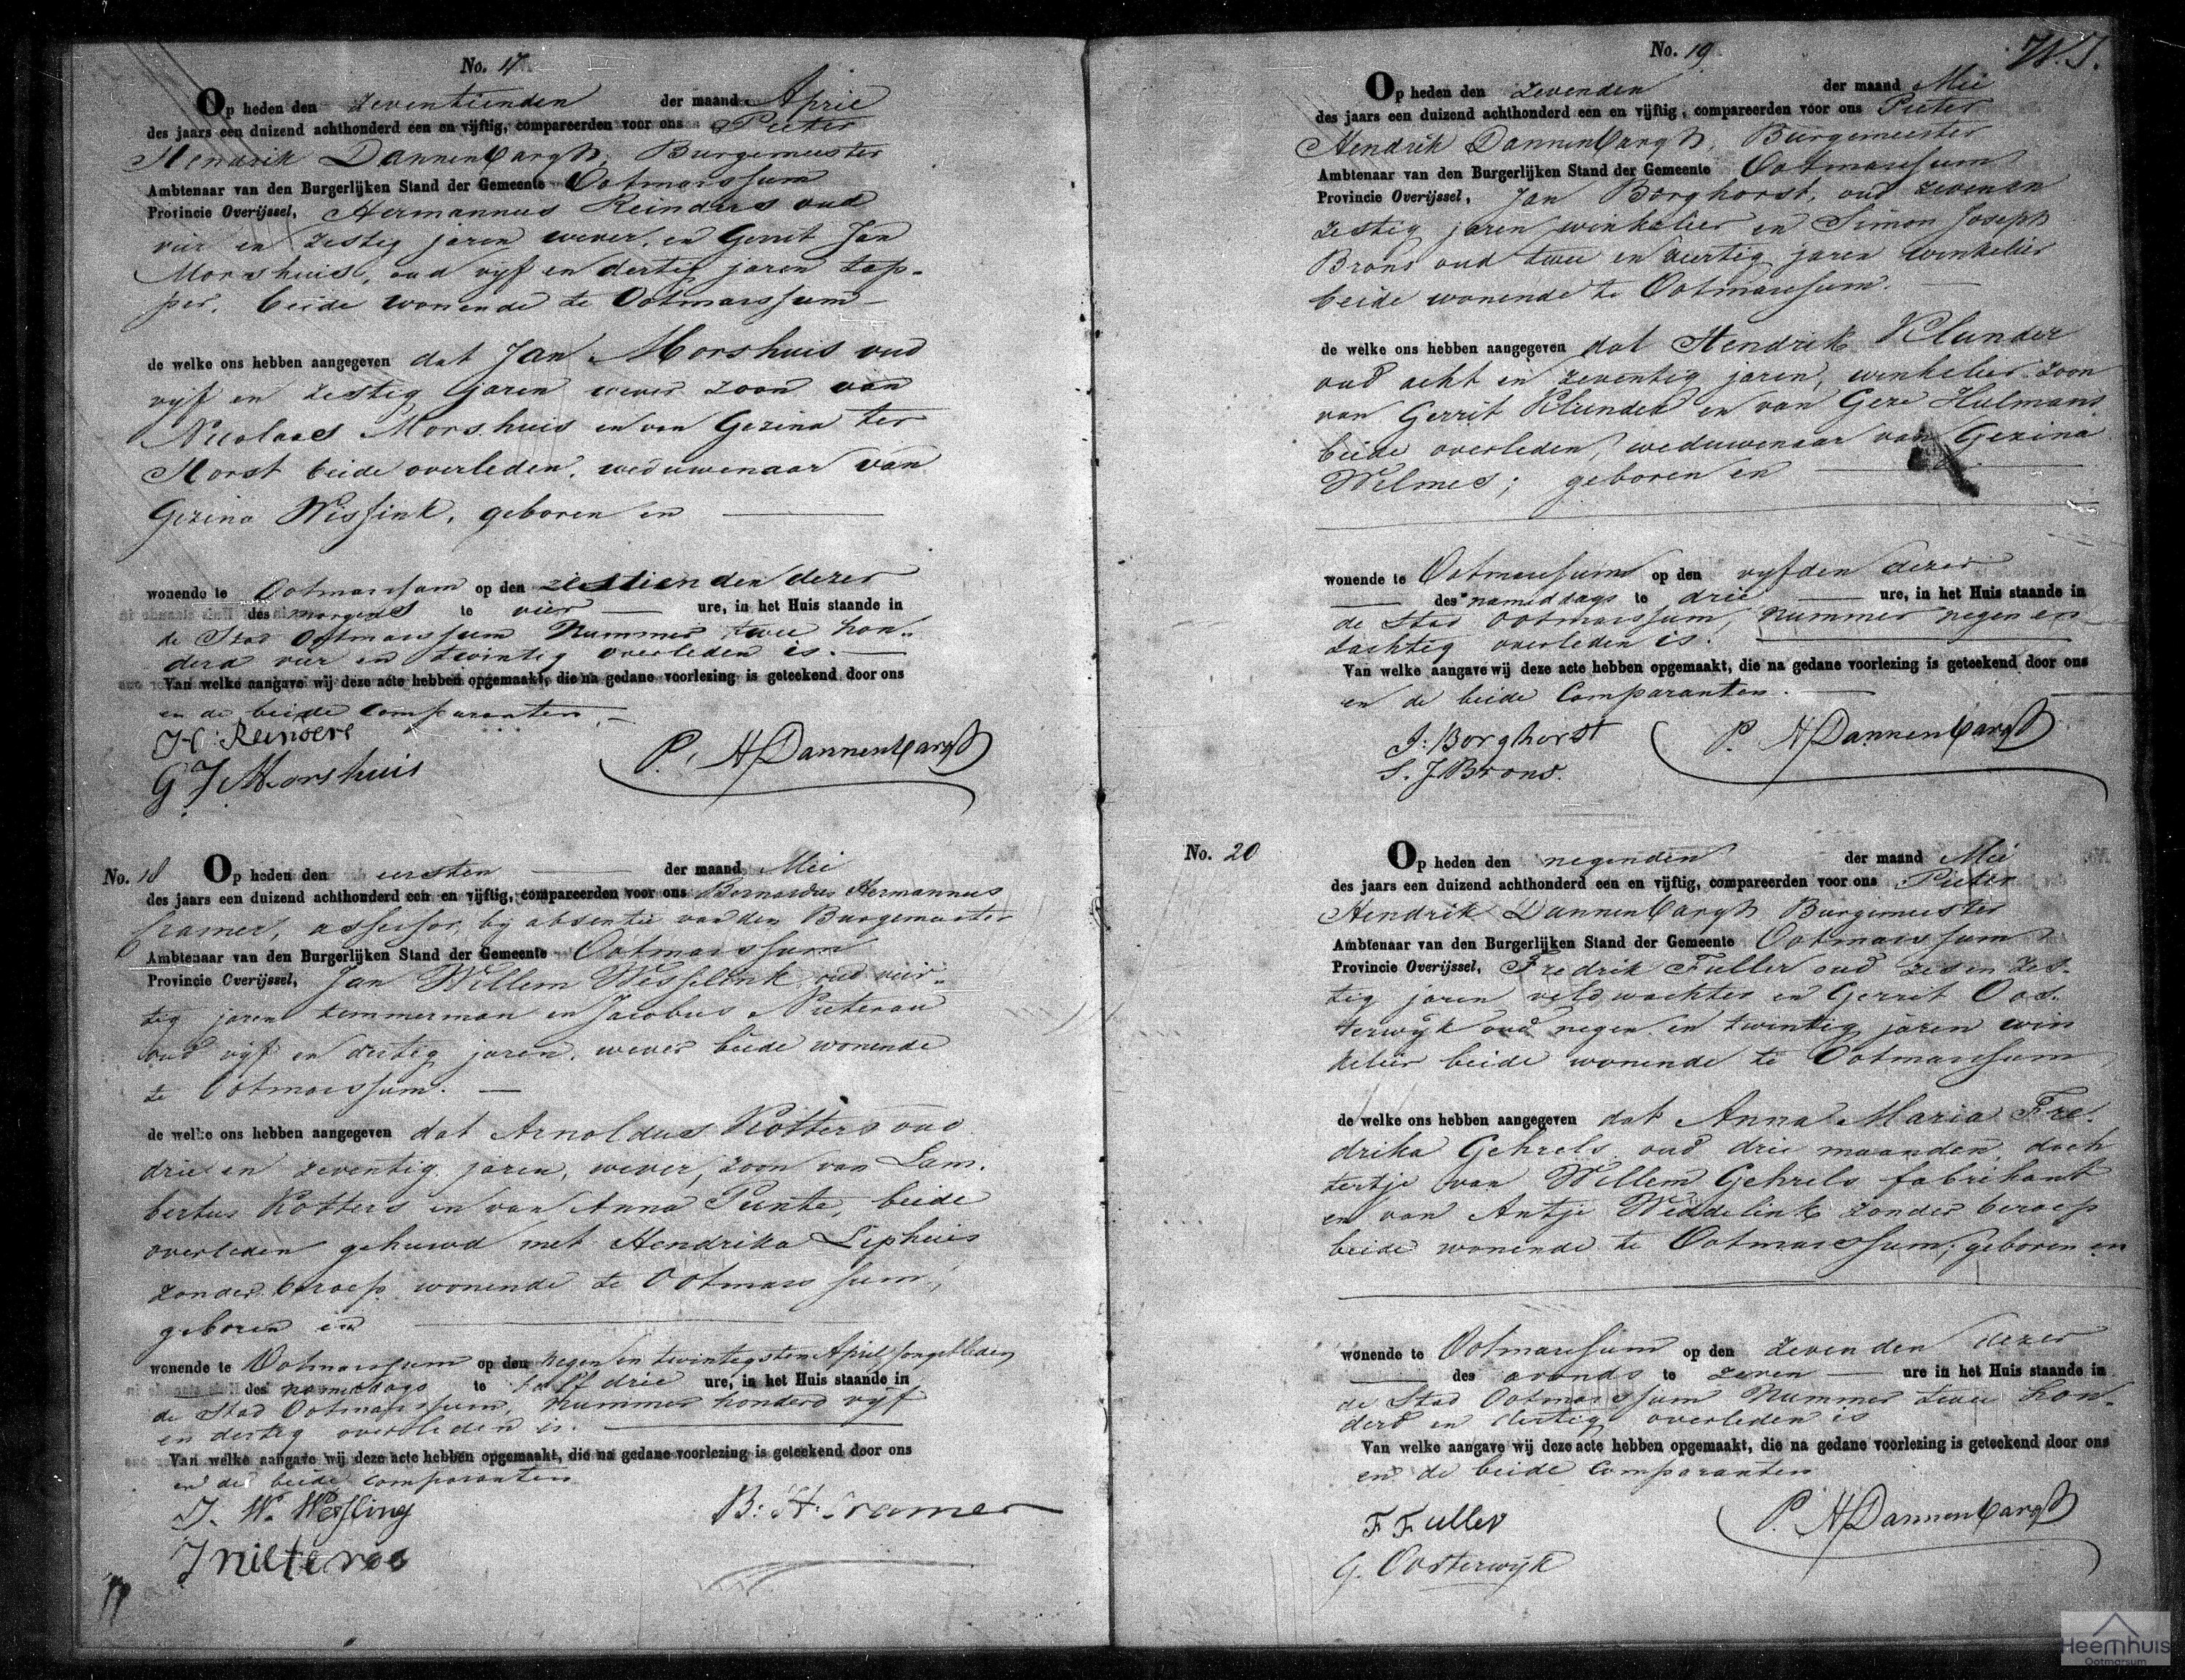 No. 17
Op heden den zeventienden der maand April
des jaars een duizend achthonderd een en vijftig, compareerden voor ons Pieter
Hendrik Dannenbargh, Burgemeester
Ambtenaar van den Burgerlijken Stand der Gemeente Ootmarssum
Provincie Overijssel, Hermannus Reinders oud
vier en zestig jaren wever, en Gerrit Jan
Morshuis, oud vijf en dertig jaren tap-
per, beide wonende te Ootmarssum
de welke ons hebben aangegeven dat Jan Morshuis oud
vijf en zestig jaren wever zoon van
Nicolaas Morshuis en van Gezina ter
Horst beide overleden, weduwenaar van
Gezina Nissink, geboren en
wonende te Ootmarssum op den zestienden dezer
des morgens te vier ure, in het Huis staande in
de Stad Ootmarssum Nummer twee hon-
derd vier en twintig overleden is.
Van welke aangave wij deze acte hebben opgemaakt, die na gedane voorlezing is geteekend door ons
en de beide Comparanten.
H. Reinders
G J Morshuis
P. H Dannenbargh
No. 18
Op heden den eersten der maand Mei
des jaars een duizend achthonderd een en vijftig, compareerden voor ons Bernardus Hermannus
Cramer, assessor, bij absentie van den Burgemeester
Ambtenaar van den Burgerlijken Stand der Gemeente Ootmarssum
Provincie Overijssel, Jan Willem Wesselink oud vier-
tig jaren timmerman en Jacobus
oud vijf en dertig jaren, wever beide wonende
te Ootmarssum.
de welke ons hebben aangegeven dat Arnoldus Kotters oud
drie en zeventig jaren, wever, zoon van Lam-
bertus Kotters en van Anna Punte, beide
overleden gehuwd met Hendrika Liphuis
zonder beroep wonende te Ootmarssum,
geboren en
wonende te Ootmarssum op den negen en twintigsten April jongstleden
des namiddags te half drie ure, in het Huis staande in
de Stad Ootmarssum, nummer honderd vijf
en dertig overleden is.
Van welke aangave wij deze acte hebben opgemaakt, die na gedane voorlezing is geteekend door ons
en de beide comparanten
J. W. Wesling
B: H: Cramer
No. 19
Op heden den zevenden der maand Mei
des jaars een duizend achthonderd een en vijftig, compareerden voor ons Pieter
Hendrik Dannenbargh, Burgemeester
Ambtenaar van den Burgerlijken Stand der Gemeente Ootmarssum
Provincie Overijssel, Jan Borghorst, oud zeven en
zestig jaren winkelier en Simon Joseph
Brons oud twee en veertig jaren winkelier
beide wonende te Ootmarssum.
de welke ons hebben aangegeven dat Hendrik Klunder
oud acht en zeventig jaren, winkelier zoon
van Gerrit Klunder en van Geze Hulmans
beide overleden, weduwenaar van Gezina
Welmes; geboren en
wonende te Ootmarssum op den vijfden dezer
des namiddags te drie ure, in het Huis staande in
de Stad Ootmarssum, nummer negen en
tachtig overleden is.
Van welke aangave wij deze acte hebben opgemaakt, die na gedane voorlezing is geteekend door ons
en de beide Comparanten.
J: Borghorst
S. J Brons.
P. H Dannenbargh
No. 20
Op heden den negenden der maand Mei
des jaars een duizend achthonderd een en vijftig, compareerden voor ons Pieter
Hendrik Dannenbargh Burgemeester
Ambtenaar van den Burgerlijken Stand der Gemeente Ootmarssum
Provincie Overijssel, Fredrik Fuller oud zes en zes-
tig jaren veldwachter en Gerrit Oos-
terwijk oud negen en twintig jaren win
kelier beide wonende te Ootmarssum
de welke ons hebben aangegeven dat Anna Maria Fre-
drika Gehrels oud drie maanden, doch
tertje van Willem Gehrels fabrikant
en van Antje Weddelink zonder beroep
beide wonende te Ootmarssum; geboren en
wonende te Ootmarssum op den zevenden dezer
des avonds te zeven ure in het Huis staande in
de Stad Ootmarssum Nummer twee hon-
derd en dertig overleden is
Van welke aangave wij deze acte hebben opgemaakt, die na gedane voorlezing is geteekend door ons
en de beide Comparanten
F Fuller
G. Oosterwijk
P. H Dannenbargh
Heemhuis
Ootmarsum